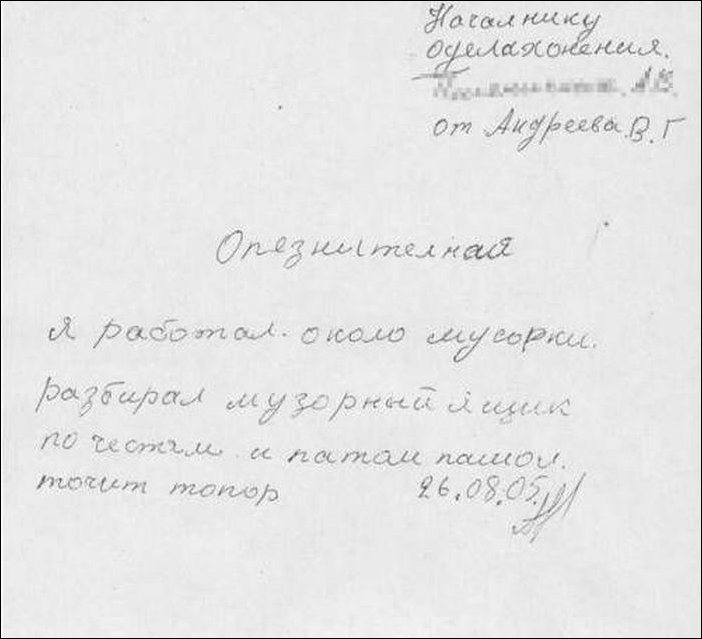 Началнику
оделахонения.
от Андреева В. Г
Опезнителная
я работал. около мусорки.
разбирал музорный ящик
по честям и патом пашол.
точит топор 26.08.05.